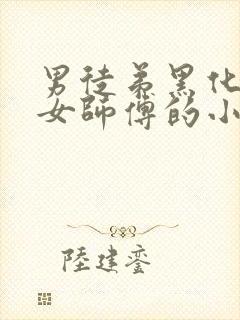 男徒弟黑化
女師傅的小
陸建鑾